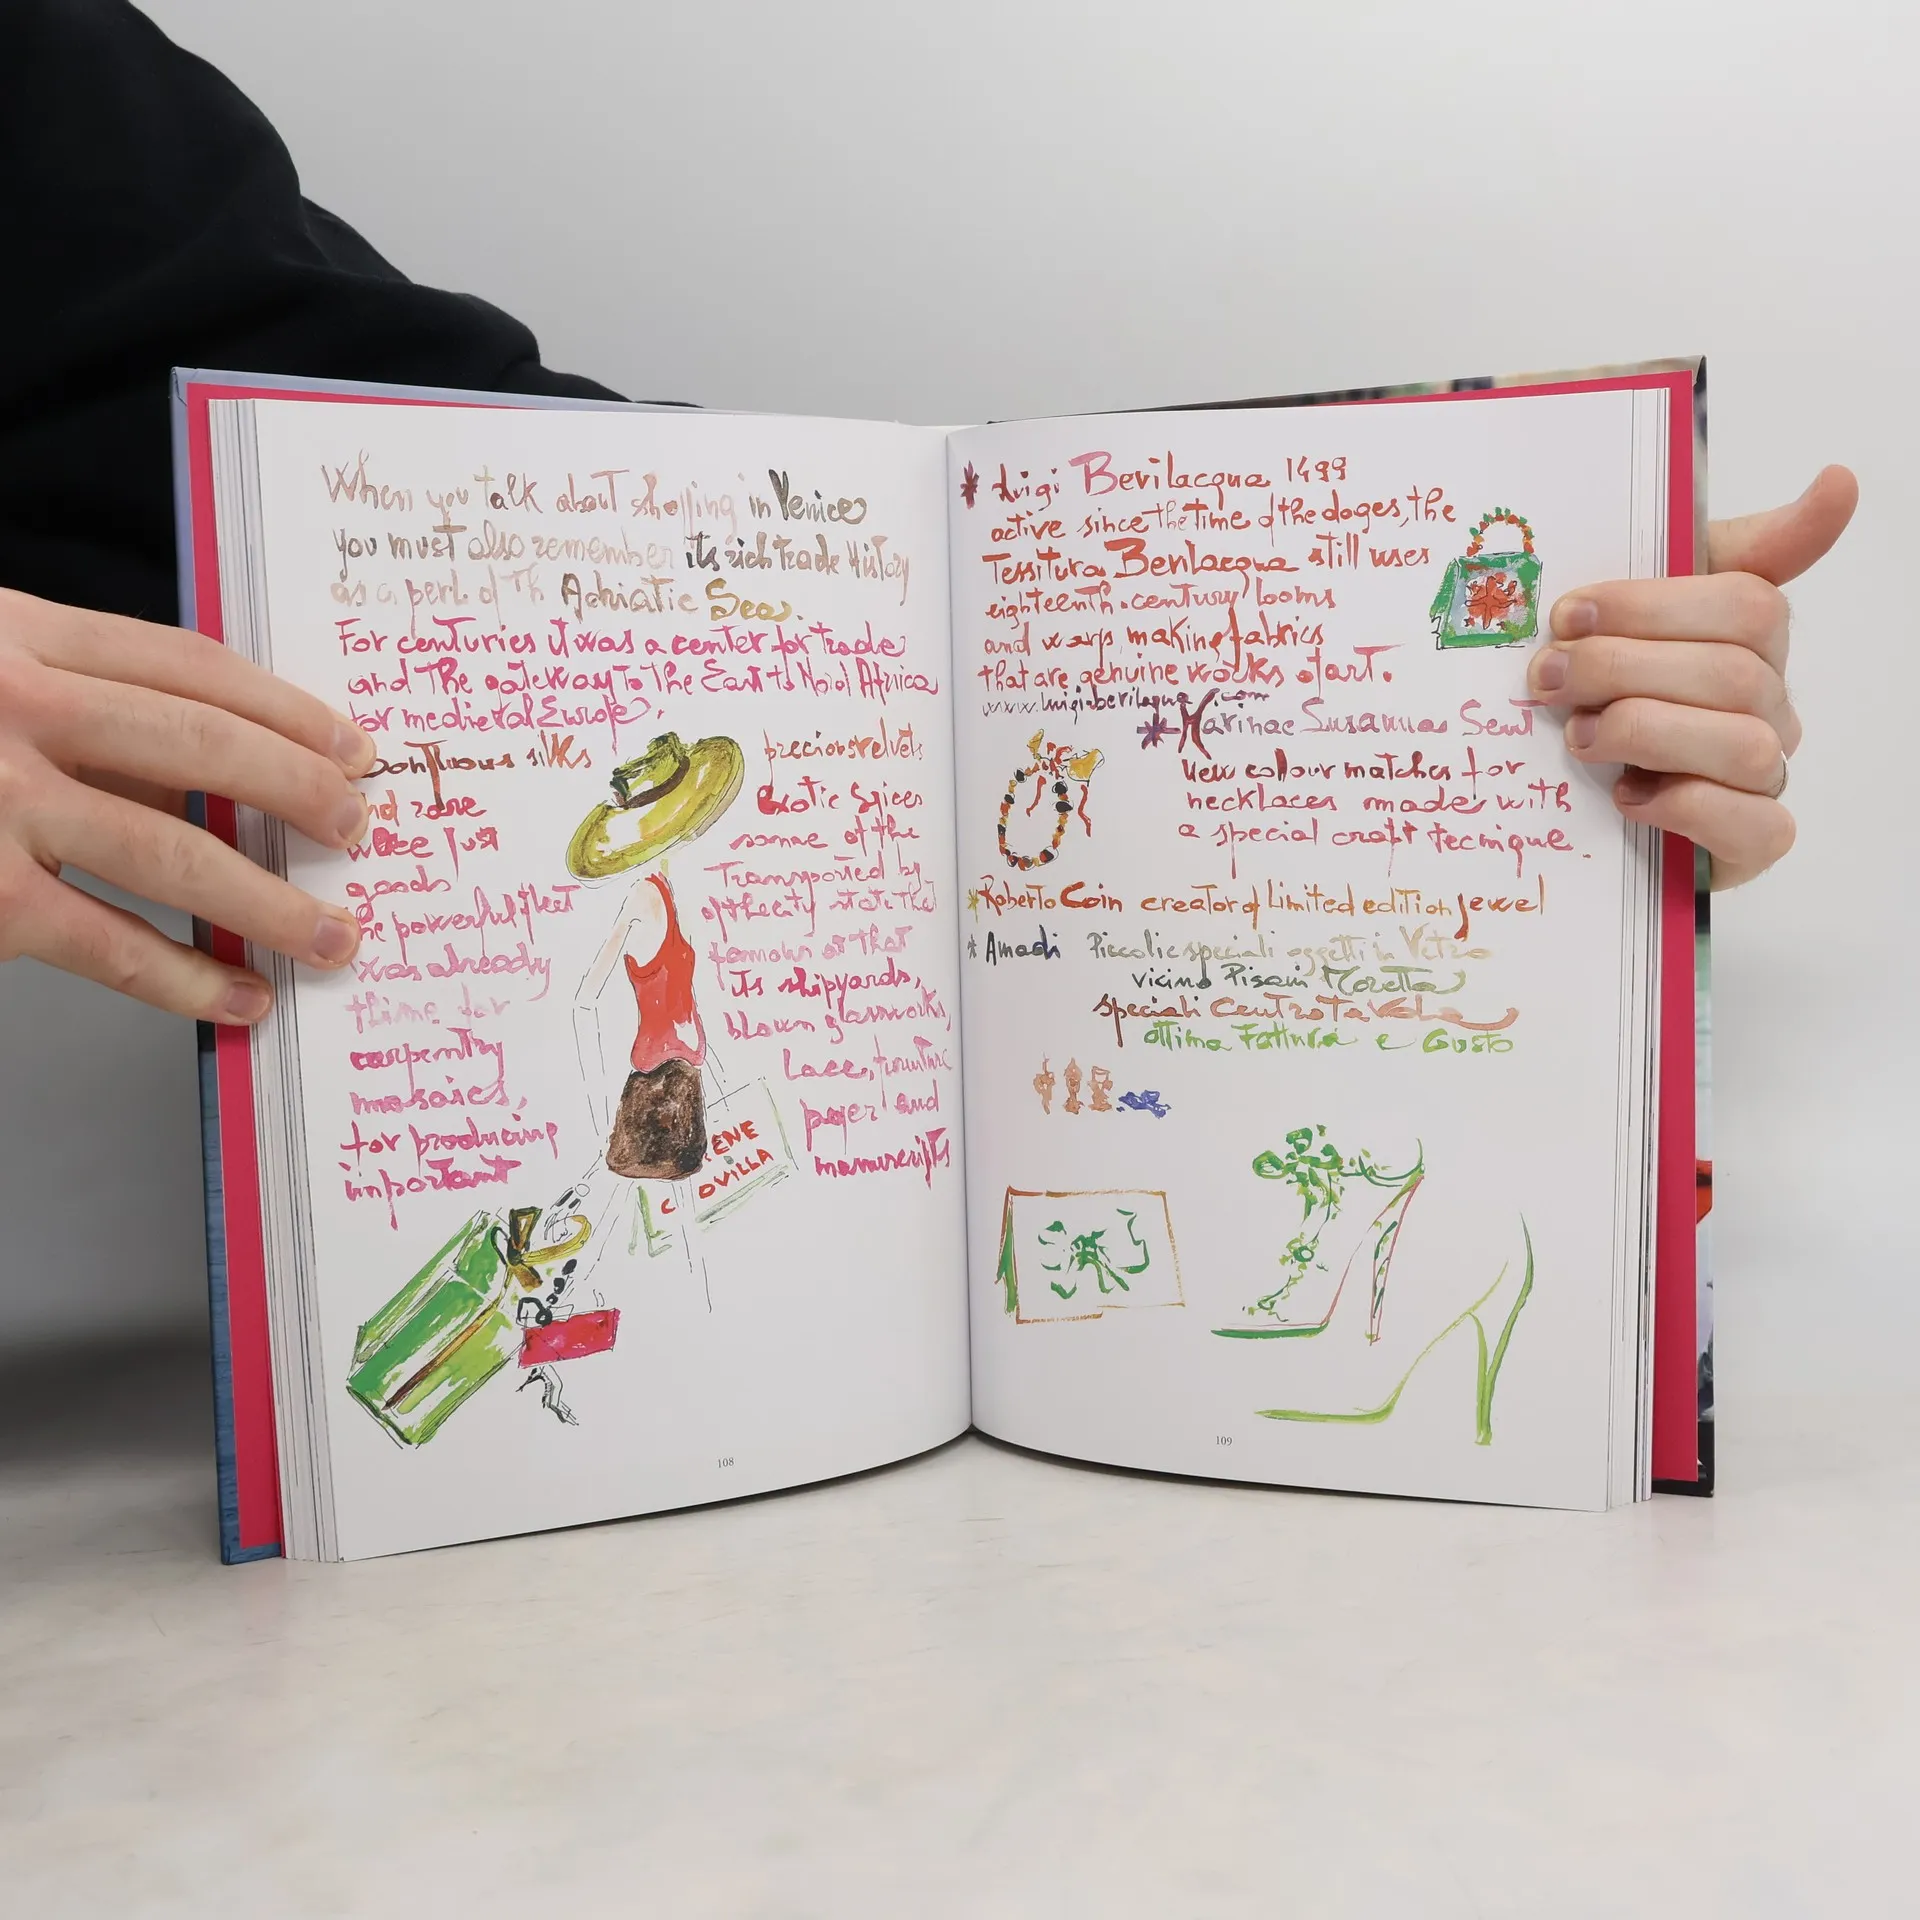 When you talk about shopping in Venice
you must also remember its rich trade History
as a part of Th Adriatic Sea.
For centuries it was a center for trade
and The gateway To The East to Africa
for medieval Europe,
silks precious velvets
and rare Exotic Spices
were Just some of the
goods Transported by
The powerful fleet of the city state that
was already famous at that
time for its shipyards,
carpentry blown glassworks,
mosaics, Lace, furniture
for producing paper and
important manuscripts
ENE
OVILLA
108
* Luigi Bevilacqua 1499
active since the time of the doges, the
Tessitura Bevilacqua still uses
eighteenth-century looms
and warps, making fabrics
that are genuine works of art.
www.luigi-bevilaqua.com
* Marina e Susanna Sent
New colour matches for
necklaces made with
a special craft tecnique.
* Roberto Coin creator of Limited edition Jewel
* Amadi Piccoli e speciali oggetti in Vetro
vicino Pisani Moretta
speciali Centro Tavola
ottima Fattura e Gusto
109